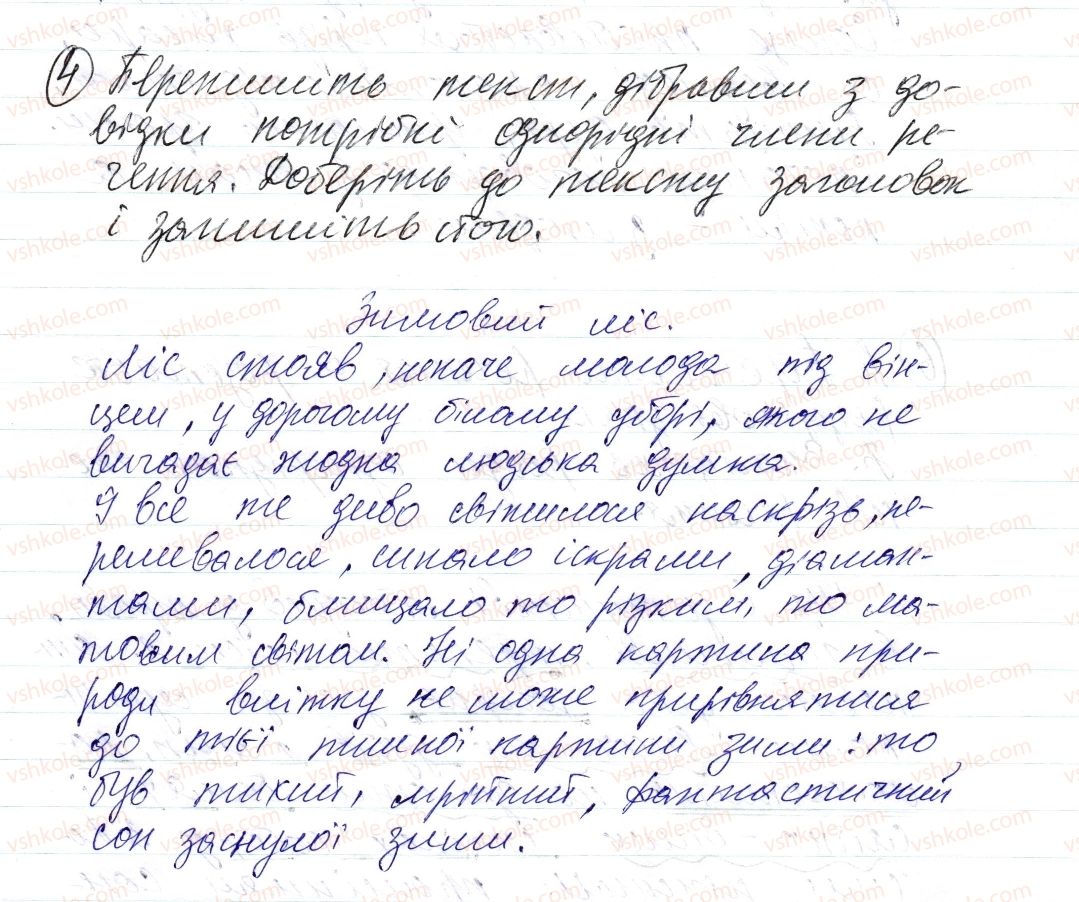 4 Перепишіть текст, дібравши з до-
відки потрібні однорідні члени ре-
чення. Доберіть до тексту заголовок
і запишіть його.
Зимовий ліс.
Ліс стояв, неначе молода під він-
цем, у дорогому білому уборі, якого не
вигадає жодна людська думка.
І все те диво світилося наскрізь, пе-
реливалося, сипало іскрами, діаман-
тами, блищало то різким, то ма-
товим світом. Ні одна картина при-
роди влітку не може прирівнятися
до тієї пишної картини зими: то
був тихий, мрійний, фантастичний
сон заснулої зими.